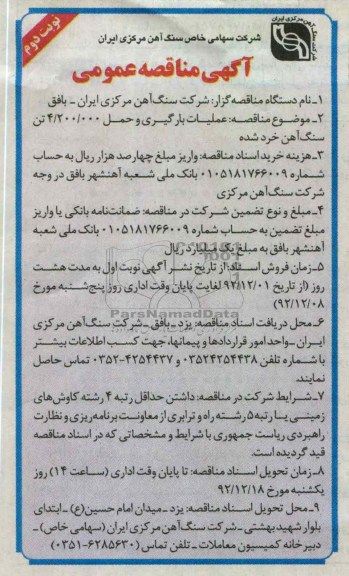 نوبت دوم
شرکت سنگ آهن مرکزی ایران
شرکت سهامی خاص سنگ آهن مرکزی ایران
آگهی مناقصه عمومی
۱ـ نام دستگاه مناقصه گزار: شرکت سنگ آهن مرکزی ایران ـ بافق
۲ـ موضوع مناقصه: عملیات بارگیری و حمل ۴/۲۰۰/۰۰۰ تن
سنگ آهن خرد شده
۳ـ هزینه خرید اسناد مناقصه: واریز مبلغ چهارصد هزار ریال به حساب
شماره ۰۱۰۵۱۸۱۷۶۶۰۰۹ بانک ملی شعبه آهنشهر بافق در وجه
شرکت سنگ آهن مرکزی
۴ـ مبلغ و نوع تضمین شرکت در مناقصه: ضمانتنامه بانکی یا واریز
مبلغ تضمین به حساب شماره ۰۱۰۵۱۸۱۷۶۶۰۰۹ بانک ملی شعبه
آهنشهر بافق به مبلغ یک میلیارد ریال
۵ـ زمان فروش اسناد: از تاریخ نشر آگهی نوبت اول به مدت هشت
روز (از تاریخ ۹۲/۱۲/۰۱ لغایت پایان وقت اداری روز پنج‌شنبه مورخ
۹۲/۱۲/۰۸)
ParsNamadData
۶ـ محل دریافت اسناد مناقصه: یزد ـ بافق ـ شرکت سنگ آهن مرکزی
ایران ـ واحد امور قراردادها و پیمانها، جهت کسب اطلاعات بیشتر
با شماره تلفن ۰۳۵۲۴۲۵۴۴۳۸ و ۴۲۵۴۴۳۷-۰۳۵۲ تماس حاصل
نمایند.
۷ـ شرایط شرکت در مناقصه: داشتن حداقل رتبه ۴ رشته کاوش‌های
زمینی یا رتبه ۵ رشته راه و ترابری از معاونت برنامه‌ریزی و نظارت
راهبردی ریاست جمهوری با شرایط و مشخصاتی که در اسناد مناقصه
قید گردیده است.
۸ـ زمان تحویل اسناد مناقصه: تا پایان وقت اداری (ساعت ۱۴) روز
یکشنبه مورخ ۹۲/۱۲/۱۸
۹ـ محل تحویل اسناد مناقصه: یزد ـ میدان امام حسین(ع) ـ ابتدای
بلوار شهید بهشتی ـ شرکت سنگ آهن مرکزی ایران (سهامی خاص) ـ
دبیرخانه کمیسیون معاملات ـ تلفن تماس (۶۲۸۵۶۳۰-۰۳۵۱)